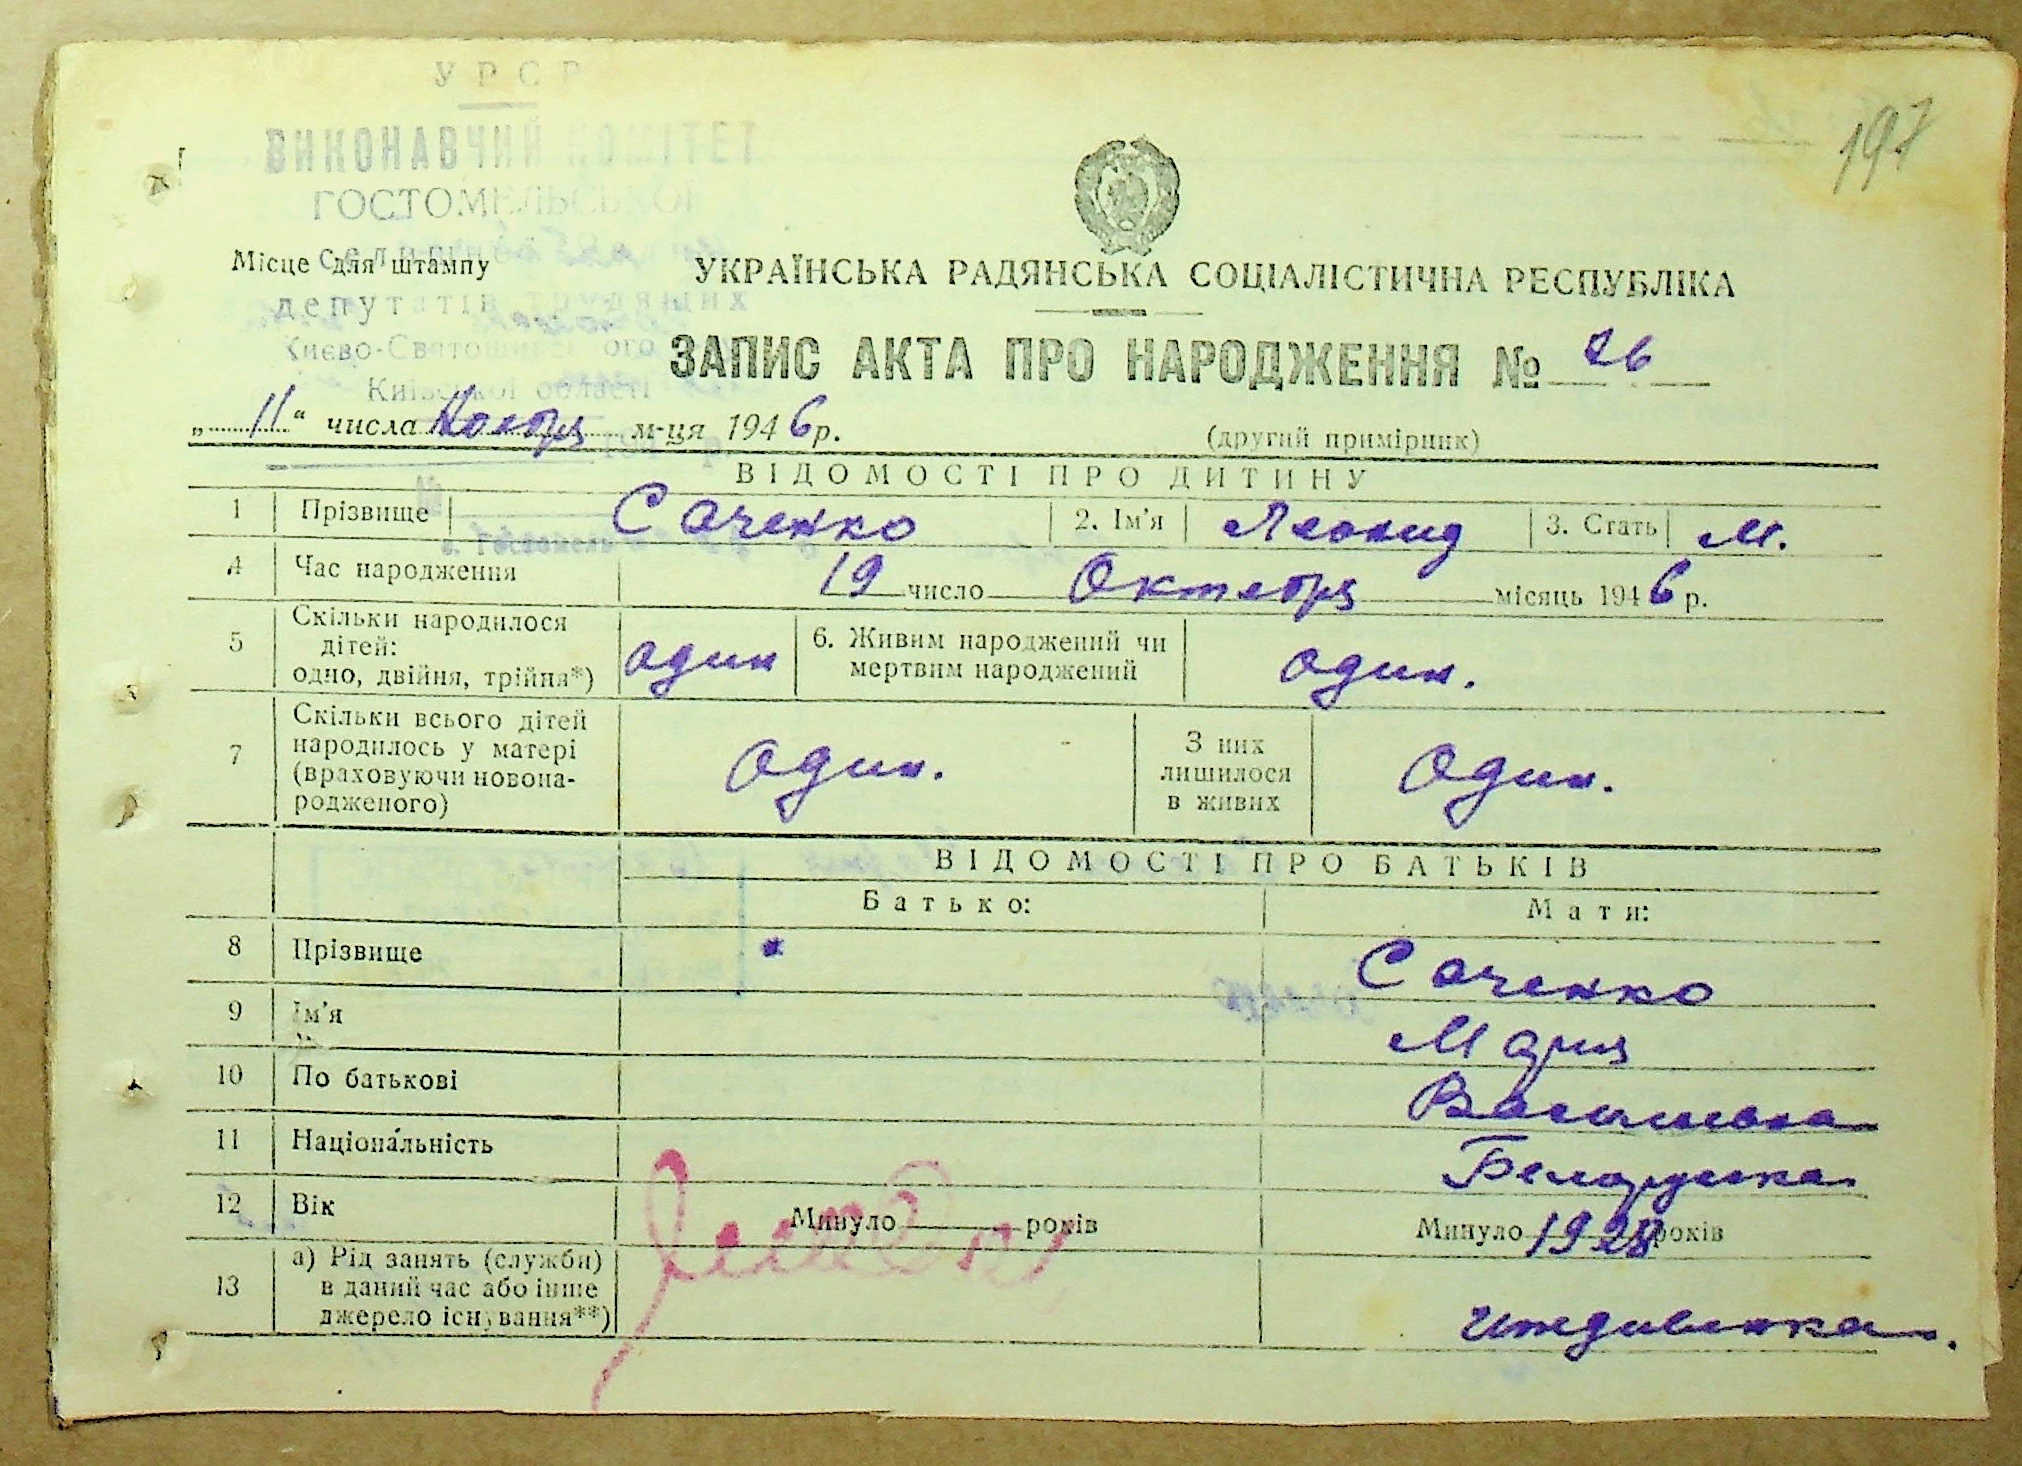 197
УРСР
ВИКОНАВЧИЙ КОМІТЕТ
ГОСТОМЕЛЬСЬКОЇ
Місце для штампу
УКРАЇНСЬКА РАДЯНСЬКА СОЦІАЛІСТИЧНА РЕСПУБЛІКА
депутатів трудящих
Київської області
ЗАПИС АКТА ПРО НАРОДЖЕННЯ № 26
„11“ числа Ноября м-ця 1946 р.
(другий примірник)
ВІДОМОСТІ ПРО ДИТИНУ
1 Прізвище Саченко 2. Ім'я Леонид 3. Стать М.
4 Час народження 19 число Октября місяць 1946 р.
5 Скільки народилося дітей: одно, двійня, трійня*) один 6. Живим народжений чи мертвим народжений один.
7 Скільки всього дітей народилось у матері (враховуючи новонародженого) Один. З них лишилося в живих Один.
ВІДОМОСТІ ПРО БАТЬКІВ
Батько: Мати:
8 Прізвище Саченко
9 Ім'я Мария
10 По батькові Васильевна
11 Національність Белоруска.
12 Вік Минуло років Минуло 1928 років
13 а) Рід занять (служби) в даний час або інше джерело існування**) иждивенка.